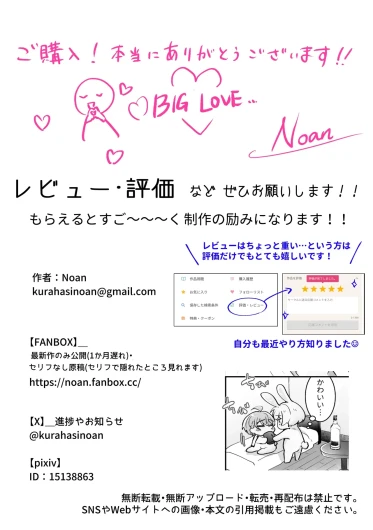 ご購入！本当にありがとうございます!!
BIG LOVE…
Noan
レビュー・評価 など ぜひお願いします！！
もらえるとすご〜〜〜く制作の励みになります！！
レビューはちょっと重い…という方は
評価だけでもとても嬉しいです！
作者：Noan
kurahasinoan@gmail.com
作品閲覧
購入履歴
お気に入り
フォローリスト
保存した検索条件
評価・レビュー
特典・クーポン
自分も最近やり方知りました☺
【FANBOX】__
最新作のみ公開(1か月遅れ)・
セリフなし原稿(セリフで隠れたところ見れます)
https://noan.fanbox.cc/
かわいい…
【X】__進捗やお知らせ
@kurahasinoan
【pixiv】
ID：15138863
無断転載・無断アップロード・転売・再配布は禁止です。
SNSやWebサイトへの画像・本文の引用掲載もご遠慮ください。